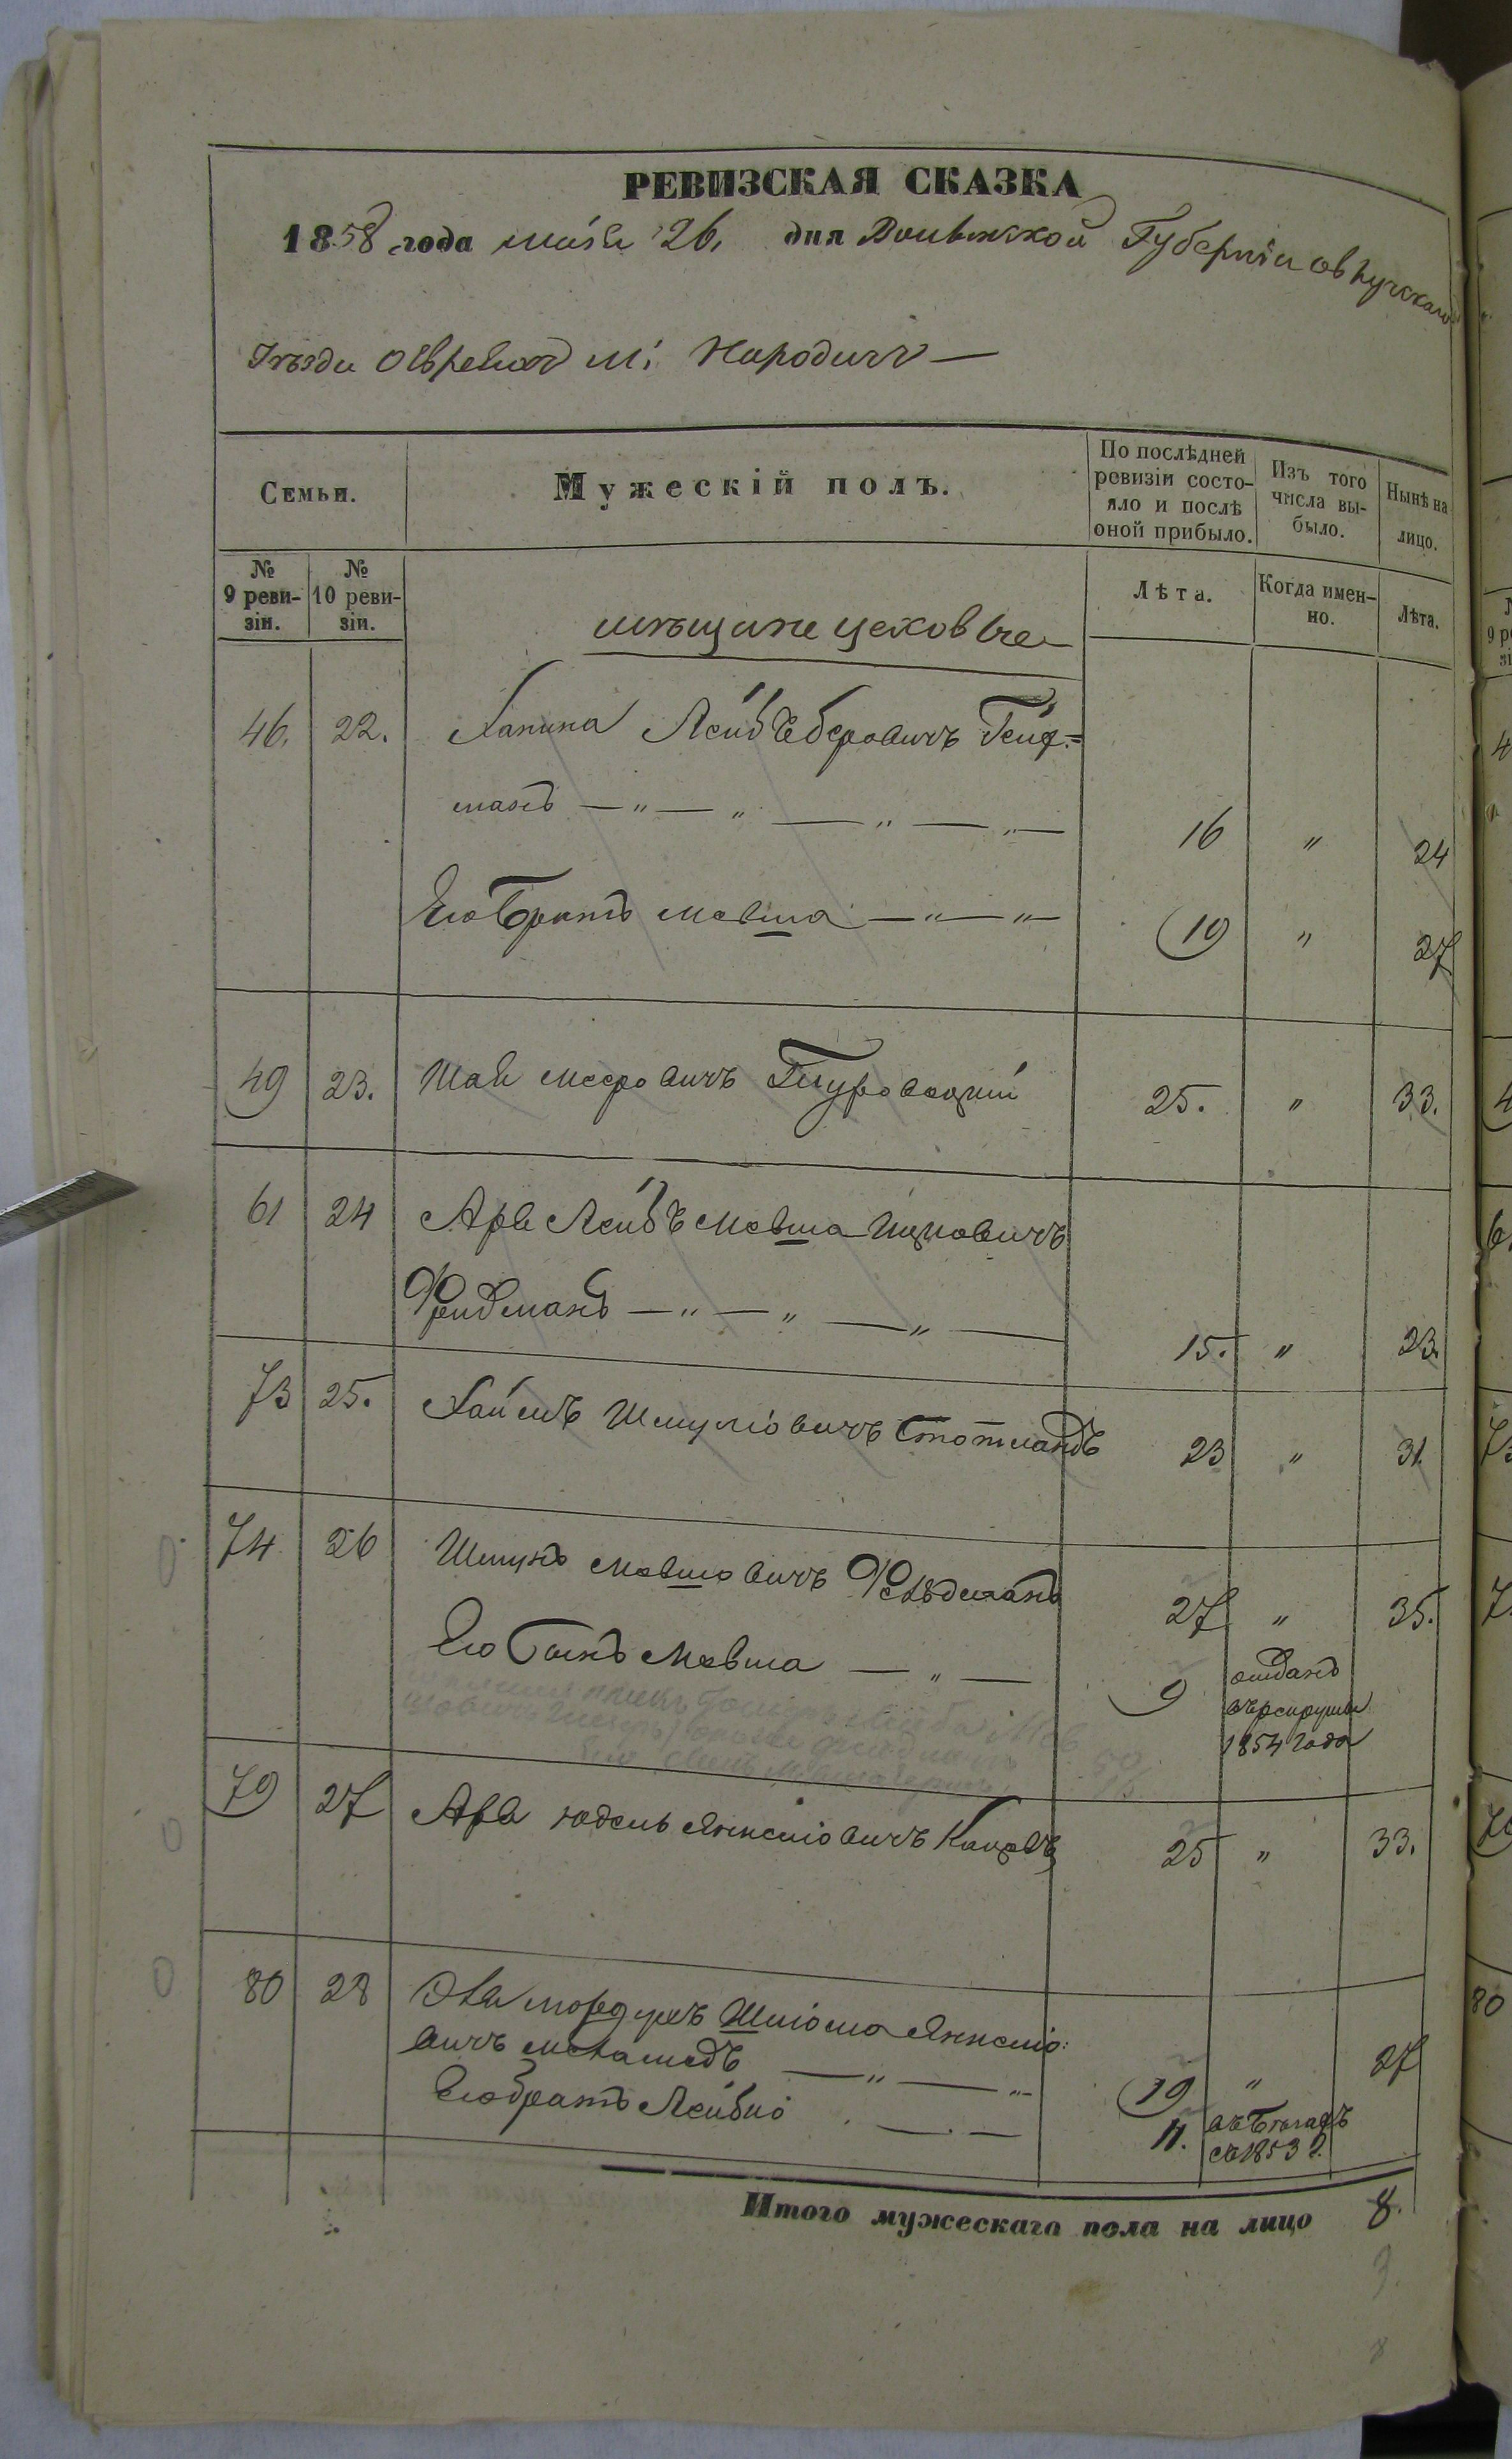 РЕВИЗСКАЯ СКАЗКА
1858 года маія 26, дня Волынской Губерніи овручскаго
Уѣзда о Евреяхъ м. Народичъ —
Семьи.
Мужескій полъ.
По послѣдней ревизіи состояло и послѣ оной прибыло.
Изъ того числа выбыло.
Нынѣ на лицо.
№ 9 ревизіи.
№ 10 ревизіи.
Лѣта.
Когда именно.
Лѣта.
мѣщане цеховые
46. 22. Ханина Лейбъ Беровичъ Гейф=
манъ — " — " — " — " — 16 " 24
Его Братъ мовша — " — " — 19 " 27
49 23. Шая мееровичъ Туровецкій 25. " 33.
61 24 Аре Лейбъ мовша Ицковичъ
Фридманъ — " — " — " — 15. " 23.
73 25. Хаимъ Шмуліовичъ Стотландъ 23 " 31.
74 26 Шмунъ мовшовичъ Фельдманъ 27 " 35.
Его Сынъ мовша — " — 9 отданъ
въ рекруты
1854 года
79 27 Аре юдель Янкеліовичъ Кацевъ 25 " 33.
80 28 Эля мордухъ Шліома Янкеліо:
вичъ меламедъ — " — " 19 " 27
Его братъ ЛейбиО . — . — 11. въ Бѣгахъ
съ 1853 г.
Итого мужескаго пола на лицо 8.